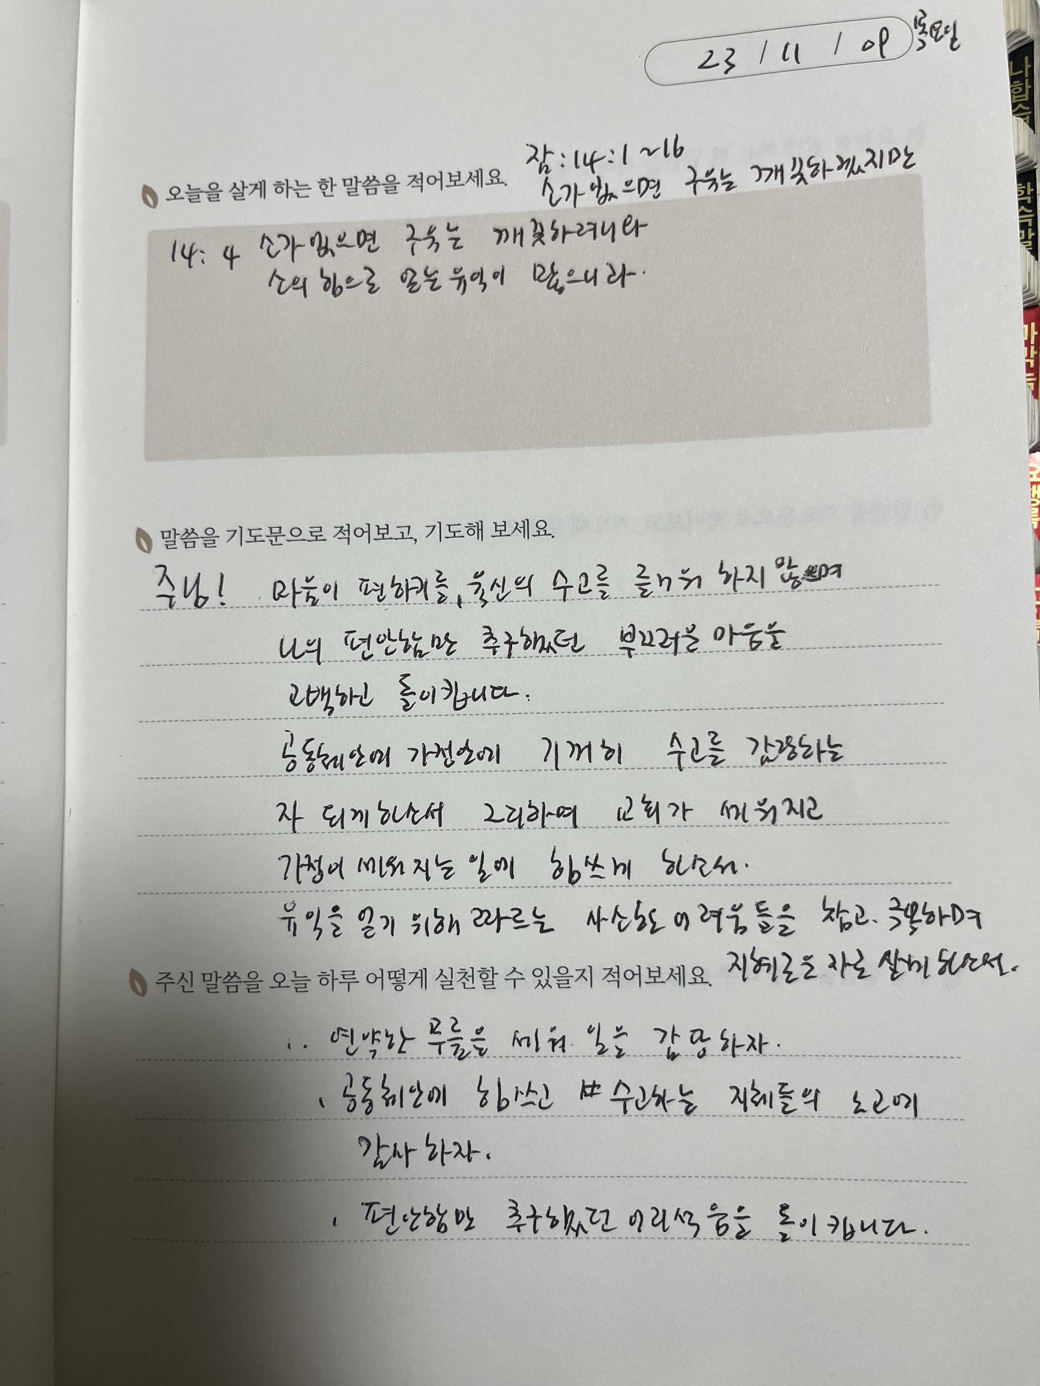 23 / 11 / 09 목요일
잠:14:1~16
오늘을 살게 하는 한 말씀을 적어보세요.
소가 없으면 구유는 깨끗하겠지만
14: 4 소가 없으면 구유는 깨끗하려니와
소의 힘으로 얻는 유익이 많으니라.
말씀을 기도문으로 적어보고, 기도해 보세요.
주님! 마음이 편하기를, 육신의 수고를 즐거워 하지 않으며
나의 편안함만 추구했던 부끄러운 마음을
고백하고 돌이킵니다.
공동체안에 가정안에 기꺼이 수고를 감당하는
자 되게하소서 그리하여 교회가 세워지고
가정이 세워지는 일에 힘쓰게 하소서.
유익을 얻기 위해 따르는 사소한 어려움들을 참고. 극복하며
지혜로운 자로 살게 하소서.
주신 말씀을 오늘 하루 어떻게 실천할 수 있을지 적어보세요.
연약한 무릎을 세워 일을 감당하자.
공동체안에 힘쓰고 수고하는 지체들의 노고에
감사하자.
편안함만 추구했던 어리석음을 돌이킵니다.